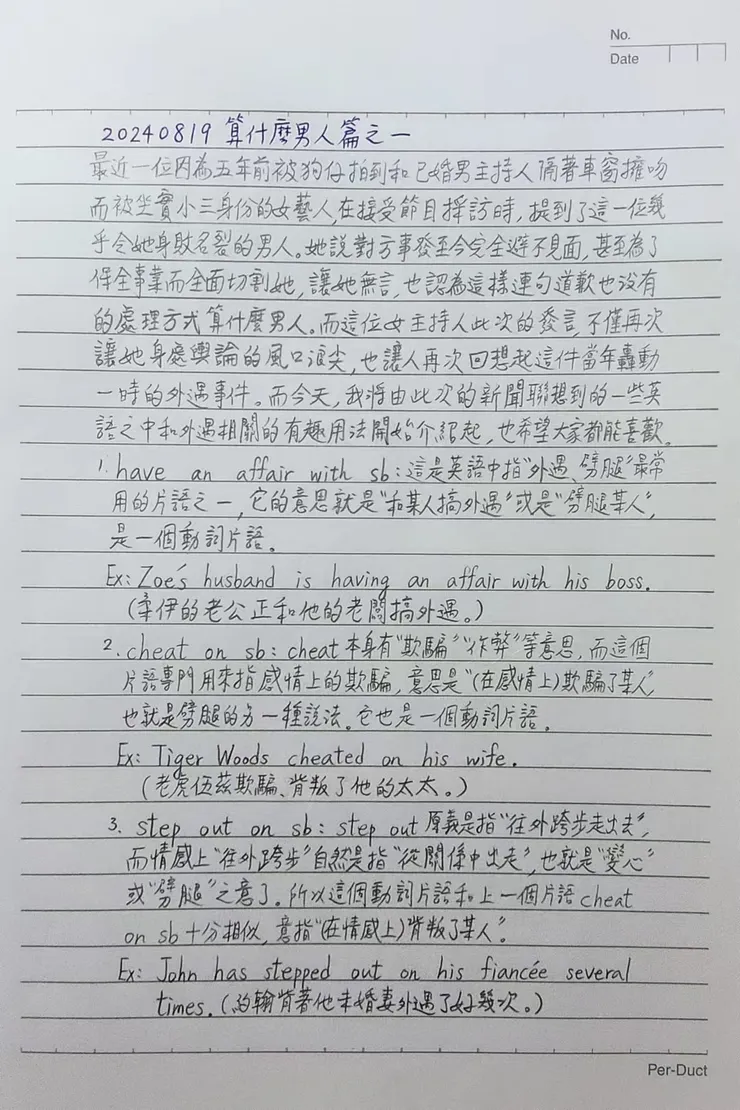 No.
Date
20240819 算什麼男人篇之一
最近一位因為五年前被狗仔拍到和已婚男主持人隔著車窗擁吻
而被坐實小三身份的女藝人,在接受節目採訪時,提到了這一位幾
乎令她身敗名裂的男人。她說對方事發至今完全避不見面,甚至為了
保全事業而全面切割她,讓她無言,也認為這樣連句道歉也沒有
的處理方式算什麼男人。而這位女主持人此次的發言,不僅再次
讓她身處輿論的風口浪尖,也讓人再次回想起這件當年轟動
一時的外遇事件。而今天,我將由此次的新聞聯想到的一些英
語之中和外遇相關的有趣用法開始介紹起,也希望大家都能喜歡。
1. have an affair with sb:這是英語中指"外遇、劈腿"最常
用的片語之一,它的意思就是"和某人搞外遇"或是"劈腿某人",
是一個動詞片語。
Ex: Zoe's husband is having an affair with his boss.
(柔伊的老公正和他的老闆搞外遇。)
2. cheat on sb: cheat本身有"欺騙""作弊"等意思,而這個
片語專門用來指感情上的欺騙,意思是"(在感情上)欺騙了某人",
也就是劈腿的另一種說法。它也是一個動詞片語。
Ex: Tiger Woods cheated on his wife.
(老虎伍茲欺騙、背叛了他的太太。)
3. step out on sb: step out原義是指"往外跨步走出去",
而情感上"往外跨步"自然是指"從關係中出走",也就是"變心"
或"劈腿"之意了。所以這個動詞片語和上一個片語cheat
on sb十分相似,意指"(在情感上)背叛了某人"。
Ex: John has stepped out on his fiancée several
times.(約翰背著他未婚妻外遇了好幾次。)
Per-Duct